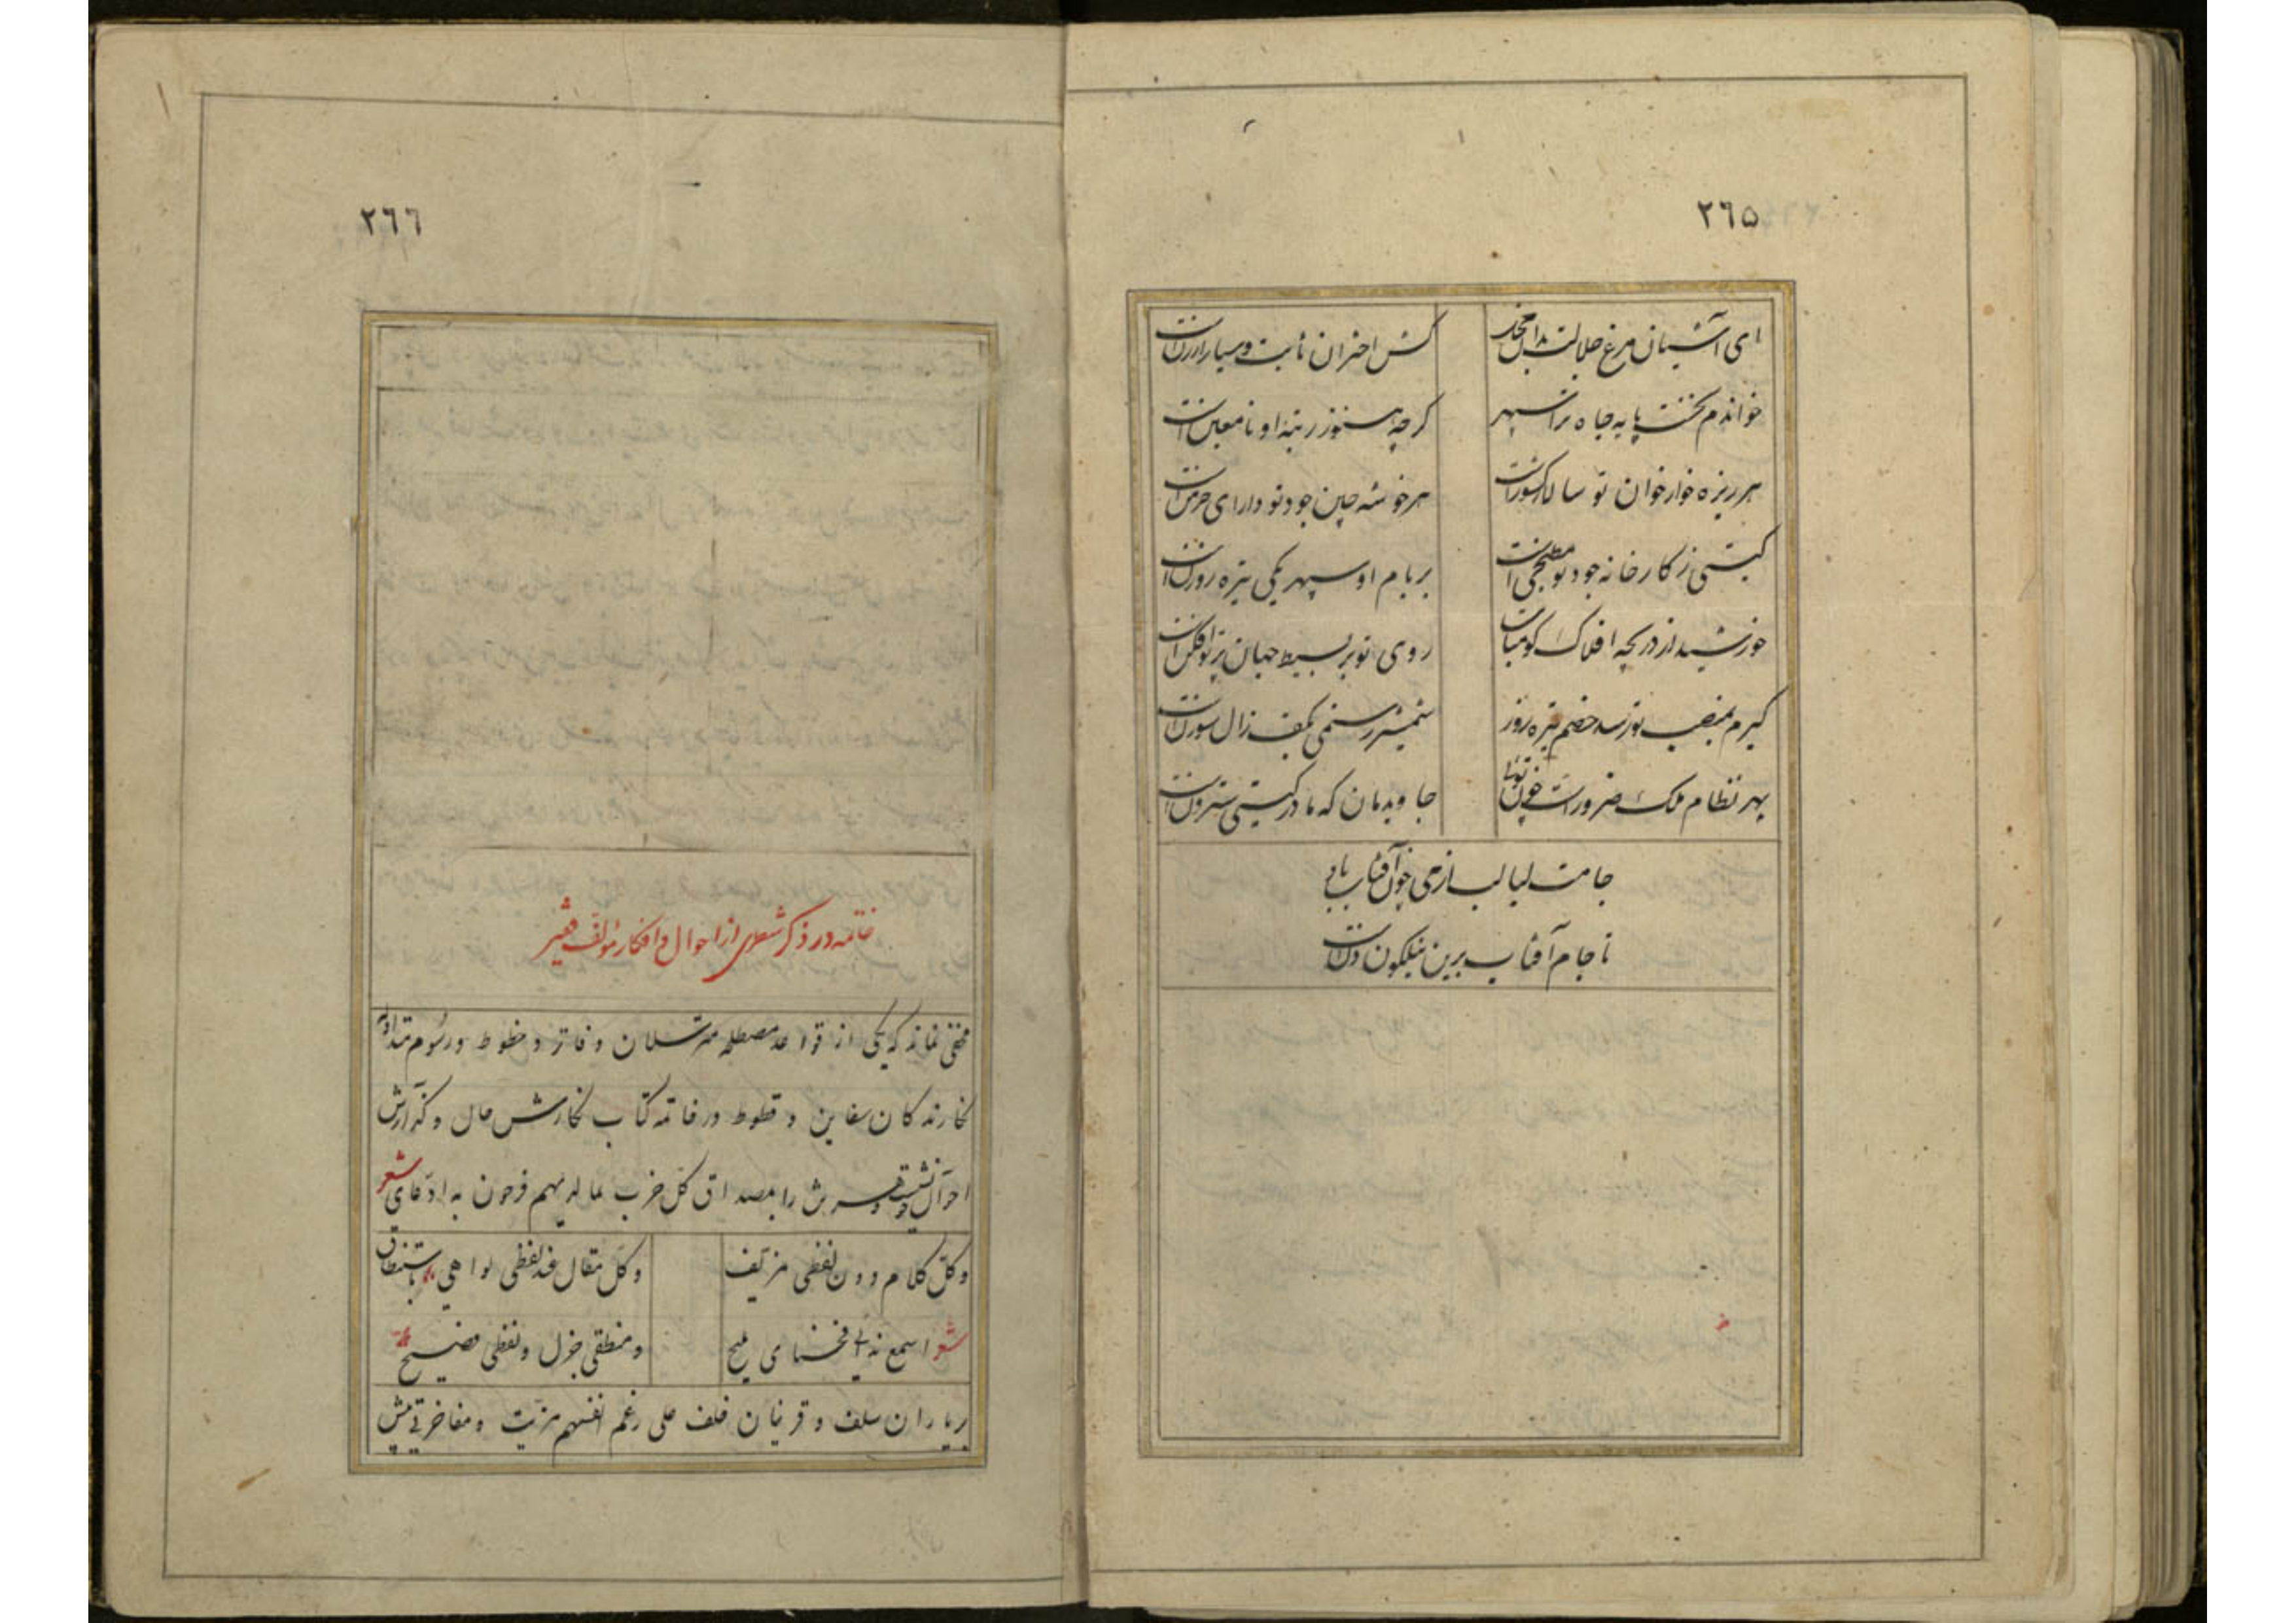 ٢٦٥
ای آشیان مرغ جلالت
کش اختران ثابت و سیار ارزن است
خواندم نخست پایه جاه ترا سپهر
گرچه هنوز رتبه او نامعین است
هر ریزه خوار خوان تو سالار کشور است
هر خوشه چین جود تو دارای خرمن است
گیتی ز کارخانه جود تو مطبخی است
بر بام او سپهر یکی تیره روزن است
خورشید از دریچه افلاک گو متاب
روی تو بر بسیط جهان پرتو افکن است
گیرم بمنصب تو رسد خصم تیره روز
شمشیر رستمی بکف زال سوزن است
بهر نظام ملک ضرور است چون توئی
جاوید مان که مادر گیتی سترون است
جامت لبالب از می چون آفتاب باد
تا جام آفتاب برین نیلگون دن است
٢٦٦
خاتمه در ذکر شطری از احوال و افکار مؤلف فقیر
مخفی نماند که یکی از قواعد مصطلحه مترسلان دفاتر و خطوط و رسوم متداوله
نگارندگان سفاین و قطوط در خاتمه کتاب نگارش حال و گذارش
احوال خویش را بمصداق کل حزب بما لدیهم فرحون به ادعای شعر
وکل کلام دون لفظی مزیف
وکل مقال عند لفظی لواهی باستنطاق
شعر اسمع نداٸی
ومنطقی جزل ولفظی فصیح
بر یاران سلف و قرینان خلف علی رغم انفسهم مزیت و مفاخرتی بیش